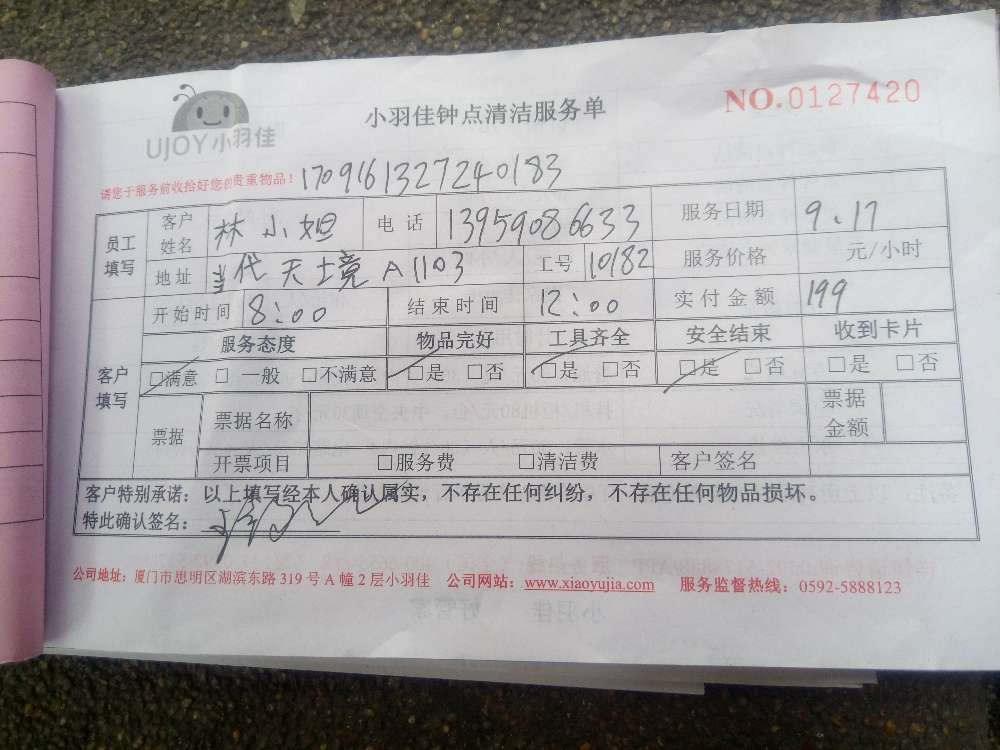 小羽佳钟点清洁服务单
NO.0127420
UJOY小羽佳
请您于服务前收拾好您的贵重物品！170916132724 0183
员工填写 客户姓名 林小姐 电话 13959086633 服务日期 9.17
地址 当代天境A1103 工号 10182 服务价格 元/小时
客户填写 开始时间 8:00 结束时间 12:00 实付金额 199
服务态度 物品完好 工具齐全 安全结束 收到卡片
□满意 □一般 □不满意 □是 □否 □是 □否 □是 □否 □是 □否
票据 票据名称 票据金额
开票项目 □服务费 □清洁费 客户签名
客户特别承诺：以上填写经本人确认属实，不存在任何纠纷，不存在任何物品损坏。
特此确认签名：
公司地址：厦门市思明区湖滨东路319号A幢2层小羽佳 公司网站：www.xiaoyujia.com 服务监督热线：0592-5888123